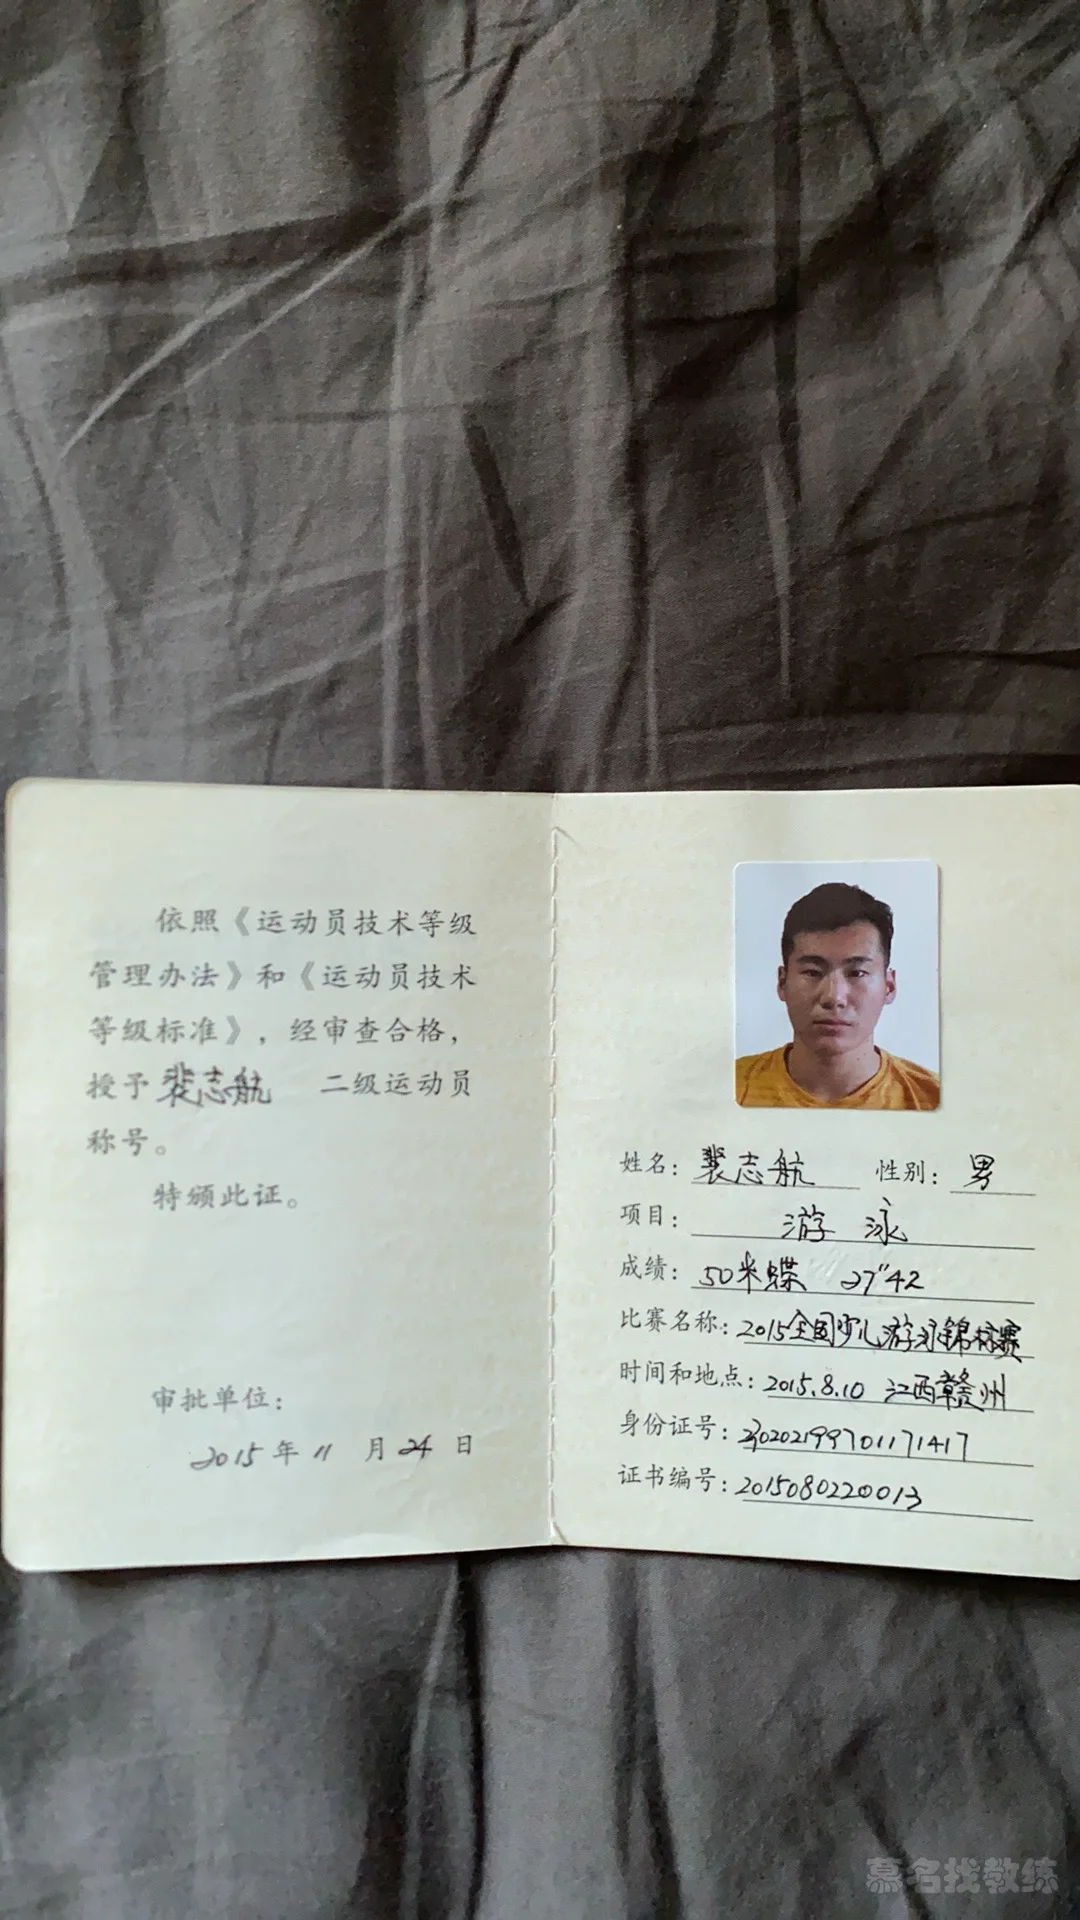 依照《运动员技术等级
管理办法》和《运动员技术
等级标准》，经审查合格，
授予裴志航 二级运动员
称号。
特颁此证。
审批单位：
2015年11月24日
姓名：裴志航 性别：男
项目：游泳
成绩：50米蝶 27"42
比赛名称：2015全国少儿游泳锦标赛
时间和地点：2015.8.10 江西赣州
身份证号：230202199701171417
证书编号：2015080220013
慕名找教练